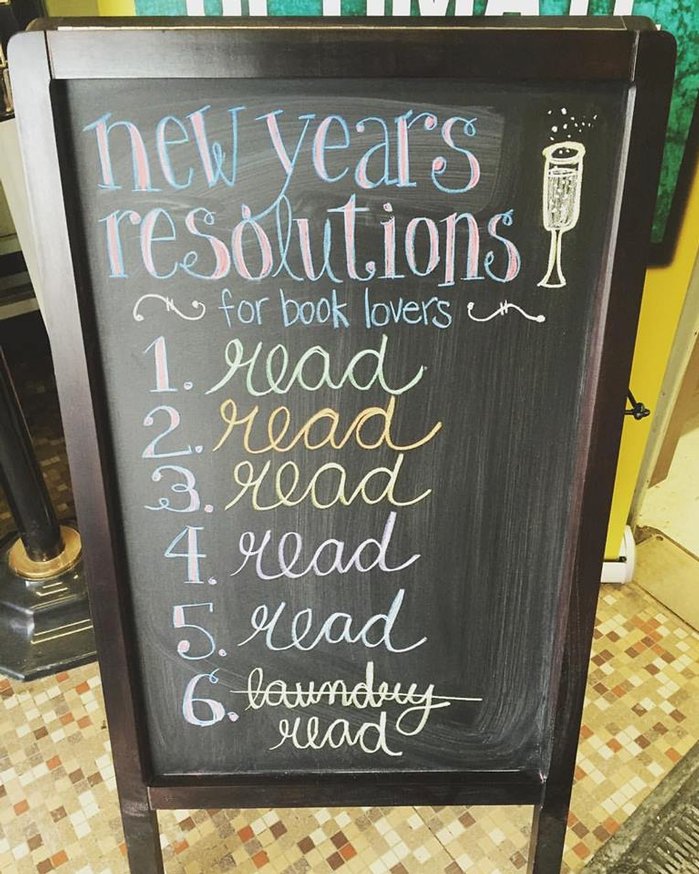 new years
resolutions
for book lovers
1. read
2. read
3. read
4. read
5. read
6. laundry
read